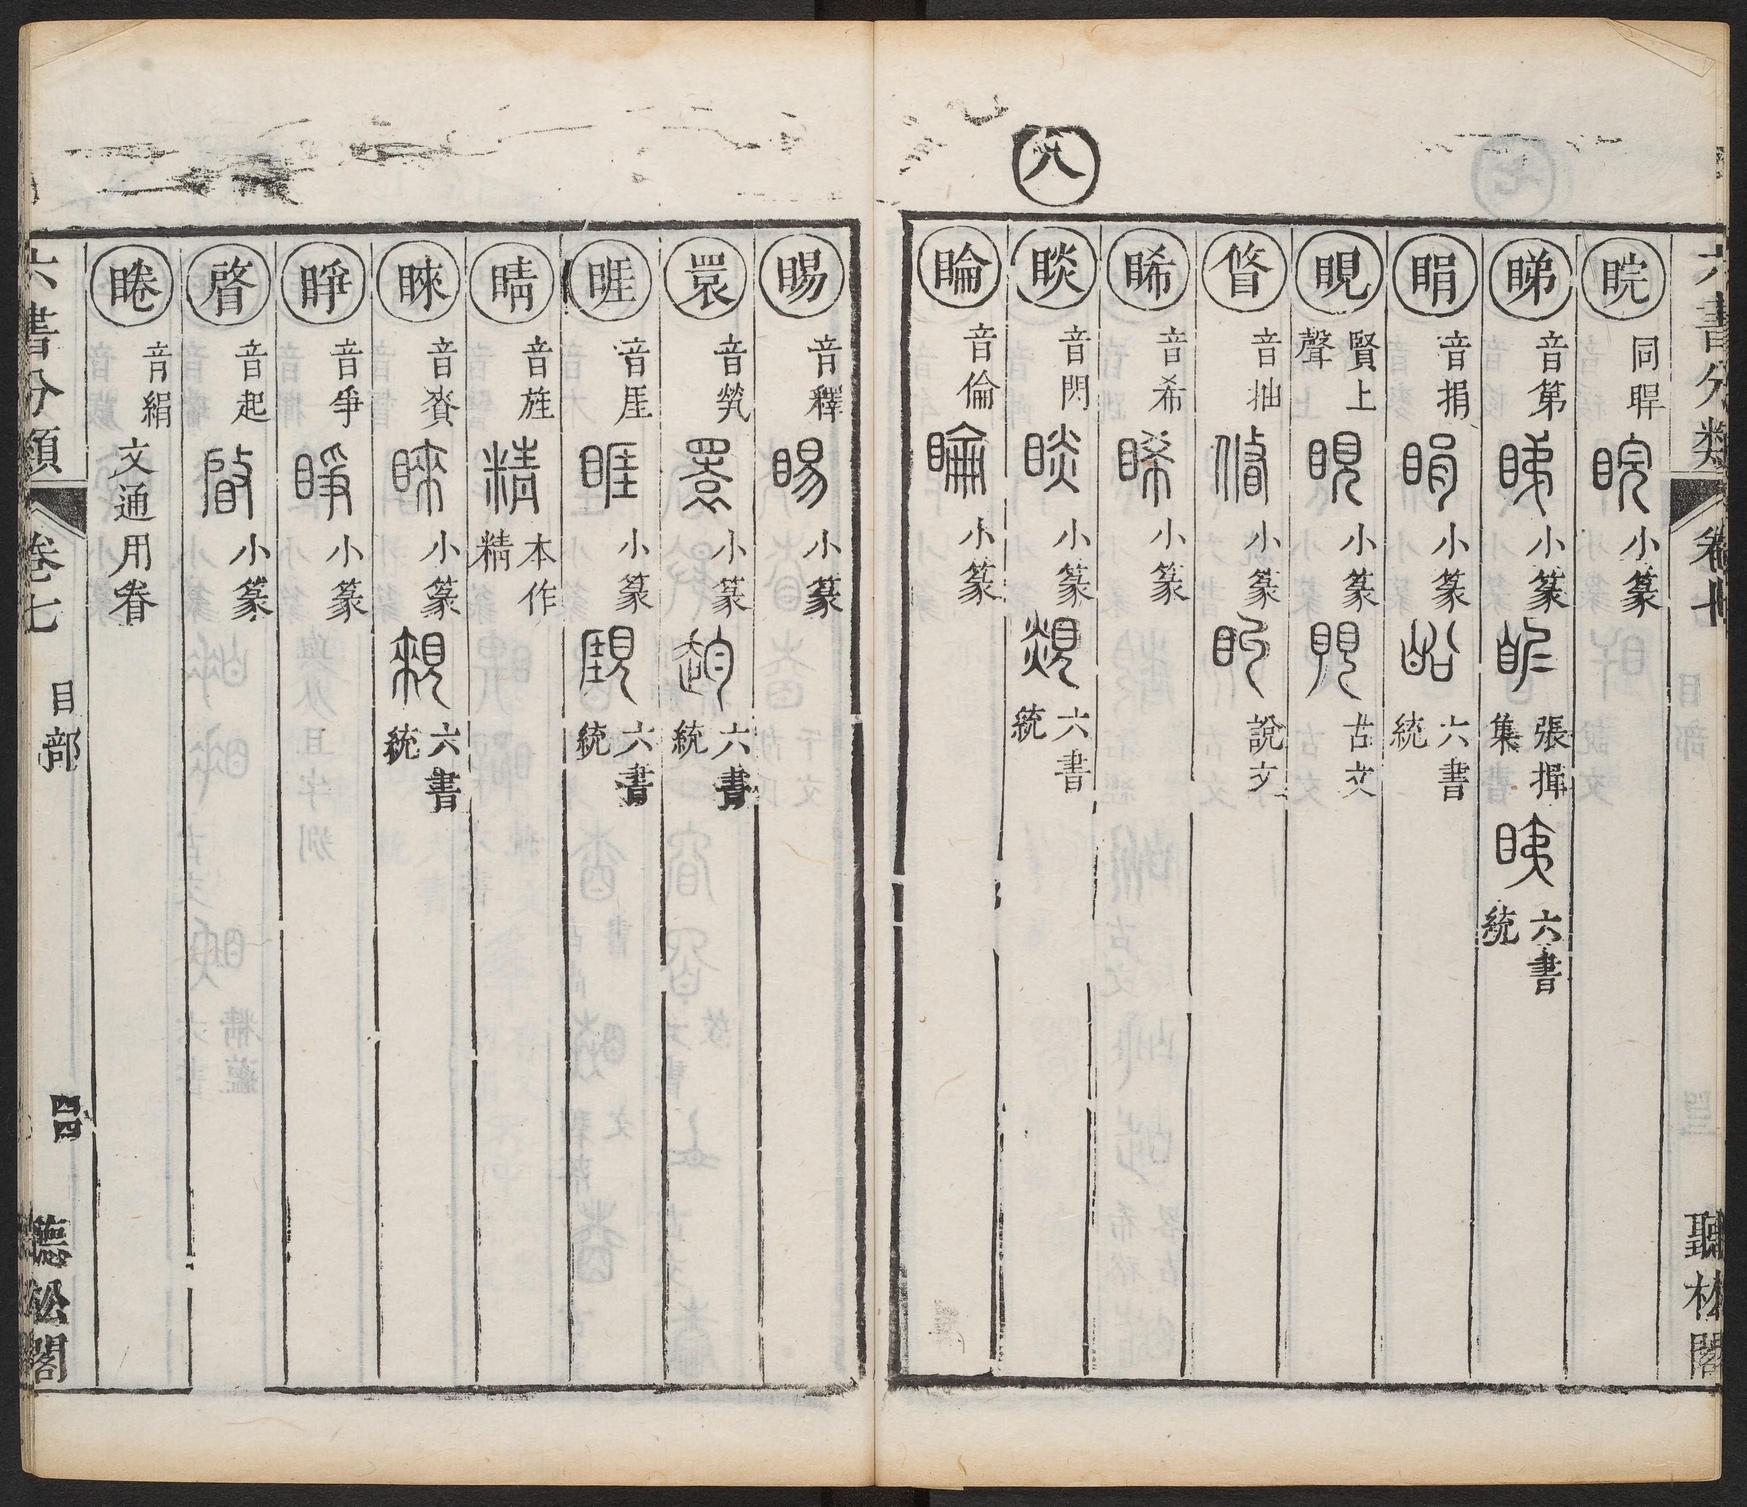 六書分類 卷七 目部 聽松閣
睆 同睅 小篆
睇 音第 小篆 張揖集 六書統
睊 音捐 小篆 六書統
睍 賢上聲 小篆 古文
䀺 音抽 小篆 說文
睎 音希 小篆
睒 音閃 小篆 六書統
睔 音倫 小篆
八
睗 音釋 小篆
睘 音煢 小篆 六書統
睚 音厓 小篆 六書統
睛 音旌 本作精
睞 音賚 小篆 六書統
睜 音爭 小篆
晵 音起 小篆
睠 音絹 文通用眷
六書分類 卷七 目部 四四 聽松閣